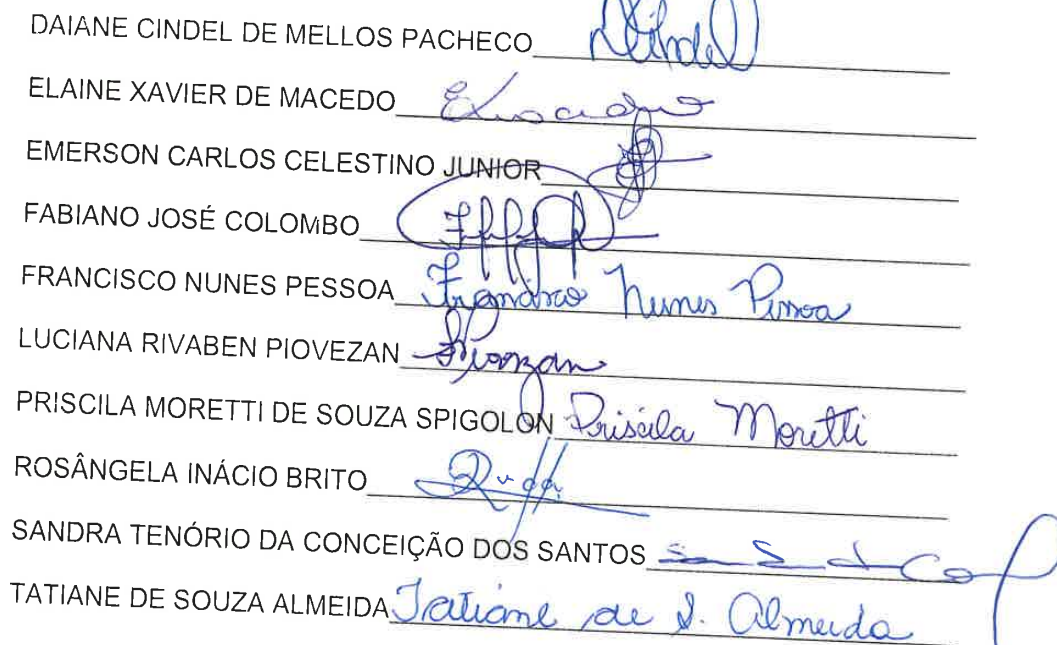 DAIANE CINDEL DE MELLOS PACHECO
ELAINE XAVIER DE MACEDO
EMERSON CARLOS CELESTINO JUNIOR
FABIANO JOSÉ COLOMBO
FRANCISCO NUNES PESSOA Francisco Nunes Pessoa
LUCIANA RIVABEN PIOVEZAN
PRISCILA MORETTI DE SOUZA SPIGOLON Priscila Moretti
ROSÂNGELA INÁCIO BRITO
SANDRA TENÓRIO DA CONCEIÇÃO DOS SANTOS
TATIANE DE SOUZA ALMEIDA Tatiane de S. Almeida